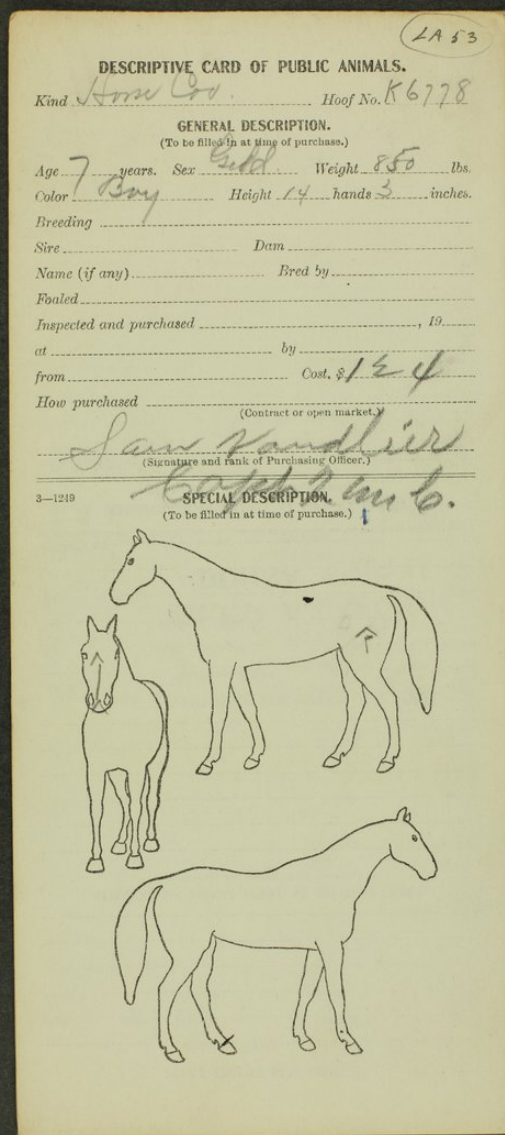 LA 53
DESCRIPTIVE CARD OF PUBLIC ANIMALS.
Kind Horse Cav. Hoof No. K6778
GENERAL DESCRIPTION.
(To be filled in at time of purchase.)
Age 7 years. Sex Geld. Weight 850 lbs.
Color Bay Height 14 hands 3 inches.
Breeding
Sire Dam
Name (if any) Bred by
Foaled
Inspected and purchased , 19
at by
from Cost, $ 124
How purchased
(Contract or open market.)
Sam
(Signature and rank of Purchasing Officer.)
Capt Q M C.
3—1249
SPECIAL DESCRIPTION.
(To be filled in at time of purchase.) 1